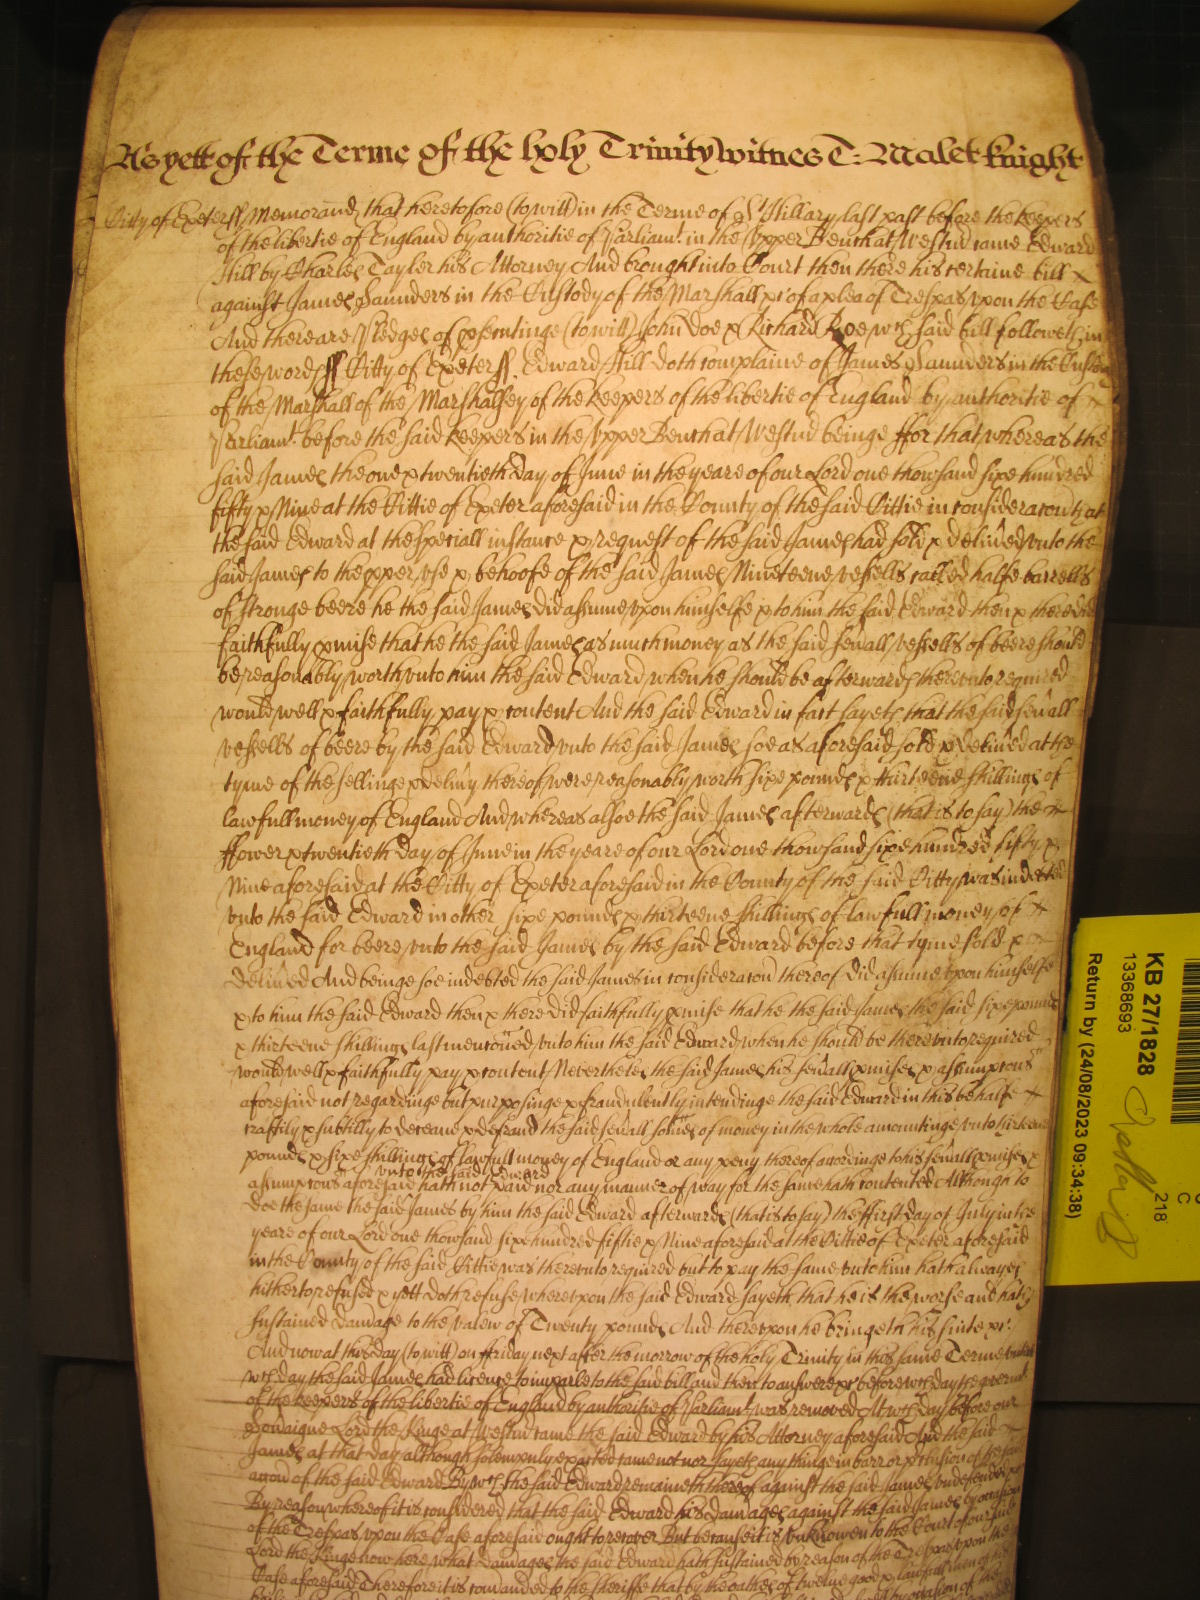 As yett of the Terme of the holy Trinity witnes T: Malet knight
Citty of Exeter ss Memorand that heretofore (to witt) in the Terme of St Hillary last past before the keepers
of the libertie of England by authoritie of Parliamt. in the Upper Bench at Westmr came Edward
Hill by Charles Tayler his Attorney And brought into Court then there his certaine bill
against James Saunders in the Custody of the Marshall &c of a plea of Trespas upon the Case
And there are Pledges of prosecutinge (to witt) John Doe & Richard Roe wch said bill followeth in
these words ss Citty of Exeter ss. Edward Hill doth complaine of James Saunders in the Custody
of the Marshall of the Marshalsey of the keepers of the libertie of England by authoritie of
Parliamt. before the said keepers in the Upper Bench at Westmr beinge ffor that whereas the
said James the one & twentieth day of June in the yeare of our Lord one thowsand sixe hundred
fifty & Nine at the Cittie of Exeter aforesaid in the County of the said Cittie in consideracon that
the said Edward at the speciall instance & request of the said James had sold & delived unto the
said James to the pper use & behoofe of the said James Nineteene vessells called halfe barrells
of stronge beere he the said James did assume upon himselfe & to him the said Edward then & there did
faithfully pmise that he the said James as much money as the said sevall vessells of beere should
be reasonably worth unto him the said Edward when he should be afterwards thereunto required
would well & faithfully pay & content And the said Edward in fact sayeth that the said sevall
vessells of beere by the said Edward unto the said James soe as aforesaid sold & delived at the
tyme of the sellinge & delivy thereof were reasonably worth sixe pounds & thirteene shillings of
lawfull money of England And whereas alsoe the said James afterwards (that is to say) the
ffower & twentieth day of June in the yeare of our Lord one thowsand sixe hundred fifty &
Nine aforesaid at the Citty of Exeter aforesaid in the County of the said Citty was indebted
unto the said Edward in other sixe pounds & thirteene shillings of lawfull money of
England for beere unto the said James by the said Edward before that tyme sold &
delived And beinge soe indebted the said James in consideracon thereof did assume upon himselfe
& to him the said Edward then & there did faithfully pmise that he the said James the said sixe pounds
& thirteene shillings last menconed unto him the said Edward when he should be thereunto required
would well & faithfully pay & content Neverthelesse the said James his sevall pmises & assumpcons
aforesaid not regardinge but purposinge & fraudulently intendinge the said Edward in this behalfe
craftily & subtilly to deceave & defraud the said sevall somes of money in the whole amountinge unto thirteene
pounds & sixe shillings of lawfull money of England or any peny thereof accordinge to his sevall pmises &
assumpcons aforesaid unto the said Edward hath not paid nor any manner of way for the same hath contented Although to
doe the same the said James by him the said Edward afterwards (that is to say) the ffirst day of July in the
yeare of our Lord one thowsand sixe hundred fiftie & Nine aforesaid at the Cittie of Exeter aforesaid
in the County of the said Cittie was thereunto required but to pay the same unto him hath alwayes
hitherto refused & yett doth refuse whereupon the said Edward sayeth that he is the worse and hath
sustained damage to the valew of Twenty pounds And thereupon he bringeth his suite &c.
And now at this day (to witt) on ffriday next after the morrow of the holy Trinity in this same Terme untill
wch day the said James had licence to imparle to the said bill and then to answere &c before wch day the governmt.
of the keepers of the libertie of England by authoritie of Parliamt. was removed At wch day before our
Sovaigne Lord the Kinge at Westmr came the said Edward by his Attorney aforesaid And the said
James at that day although solempnly exacted came not nor sayeth any thinge in barr or preclusion of the said
accon of the said Edward By wch the said Edward remaineth thereof against the said James undefended &c
By reason whereof it is considered that the said Edward his damages against the said James by occasion
of the Trespas upon the Case aforesaid ought to recover But because it is unknowen to the Court of our said
Lord the Kinge now here what damages the said Edward hath sustained by reason of the Trespas upon the
Case aforesaid Therefore it is comanded to the sheriffe that by the oathes of twelve good & lawfull men of his
KB 27/1828
13368693
Return by (24/08/2023 09:34:38)
218
C